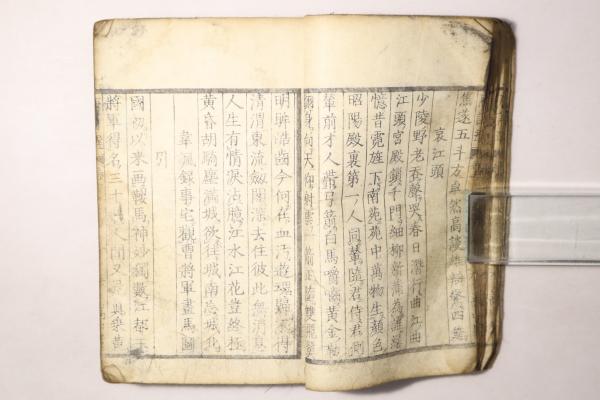 焦遂五斗方卓然高談雄辯驚四筵
哀江頭
少陵野老吞聲哭春日潛行曲江曲
江頭宮殿鎖千門細柳新蒲為誰綠
憶昔霓旌下南苑苑中萬物生顏色
昭陽殿裏第一人同輦隨君侍君側
輦前才人帶弓箭白馬嚼齧黃金勒
翻身向天仰射雲一箭正墜雙飛翼
明眸皓齒今何在血污遊魂歸不得
清渭東流劍閣深去住彼此無消息
人生有情淚沾臆江水江花豈終極
黃昏胡騎塵滿城欲往城南忘城北
韋諷錄事宅觀曹將軍畫馬圖
引
國初以來畫鞍馬神妙獨數江都王
將軍得名三十人間又見真乘黃